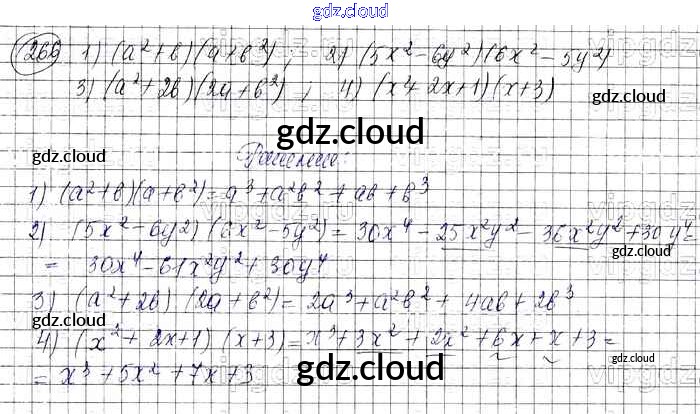 gdz.cloud
266 1) (a²+b)(a+b²) ; 2) (5x²-6y²)(6x²-5y²)
3) (a²+2b)(2a+b²) ; 4) (x²+2x+1)(x+3)
gdz.cloud
gdz.cloud gdz.cloud
Решение:
1) (a²+b)(a+b²)=a³+a²b²+ab+b³
2) (5x²-6y²)(6x²-5y²)=30x⁴-25x²y²-36x²y²+30y⁴=
gdz.cloud
= 30x⁴-61x²y²+30y⁴
3) (a²+2b)(2a+b²)=2a³+a²b²+4ab+2b³
gdz.cloud
4) (x²+2x+1)(x+3)=x³+3x²+2x²+6x+x+3=
gdz.cloud
= x³+5x²+7x+3
gdz.cloud